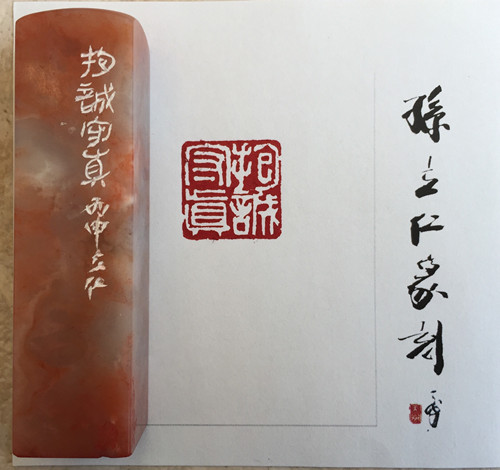 孫立仁篆刻
抱誠
守真
抱誠守真 丙申立仁